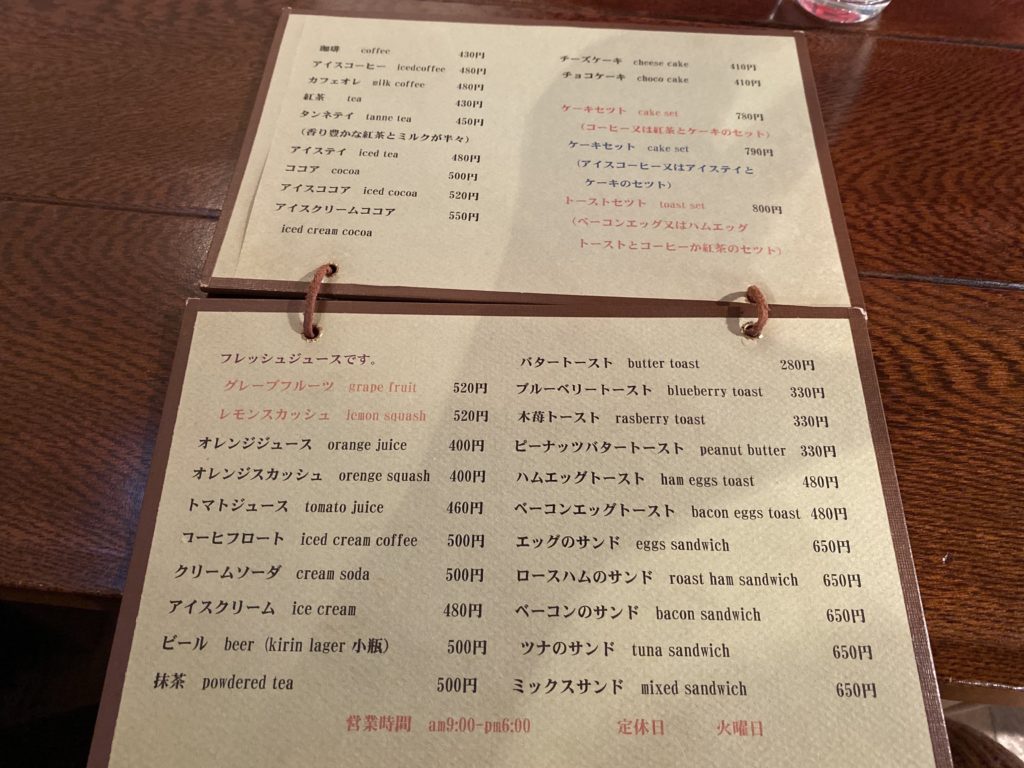 珈琲 coffee 430円
アイスコーヒー icedcoffee 480円
カフェオレ milk coffee 480円
紅茶 tea 430円
タンネテイ tanne tea 450円
(香り豊かな紅茶とミルクが半々)
アイステイ iced tea 480円
ココア cocoa 500円
アイスココア iced cocoa 520円
アイスクリームココア 550円
iced cream cocoa
チーズケーキ cheese cake 410円
チョコケーキ choco cake 410円
ケーキセット cake set 780円
(コーヒー又は紅茶とケーキのセット)
ケーキセット cake set 790円
(アイスコーヒー又はアイステイと
ケーキのセツト)
トーストセツト toast set 800円
(ベーコンエッグ又はハムエッグ
トーストとコーヒーか紅茶のセツト)
フレッシュジュースです。
グレープフルーツ grape fruit 520円
レモンスカッシュ lemon squash 520円
オレンジジュース orange juice 400円
オレンジスカッシュ orenge squash 400円
トマトジュース tomato juice 460円
コーヒフロート iced cream coffee 500円
クリームソーダ cream soda 500円
アイスクリーム ice cream 480円
ビール beer (kirin lager 小瓶) 500円
抹茶 powdered tea 500円
バタートースト butter toast 280円
ブルーベリートースト blueberry toast 330円
木苺トースト rasberry toast 330円
ピーナッツバタートースト peanut butter 330円
ハムエッグトースト ham eggs toast 480円
ベーコンエッグトースト bacon eggs toast 480円
エッグのサンド eggs sandwich 650円
ロースハムのサンド roast ham sandwich 650円
ベーコンのサンド bacon sandwich 650円
ツナのサンド tuna sandwich 650円
ミックスサンド mixed sandwich 650円
営業時間 am9:00-pm6:00 定休日 火曜日